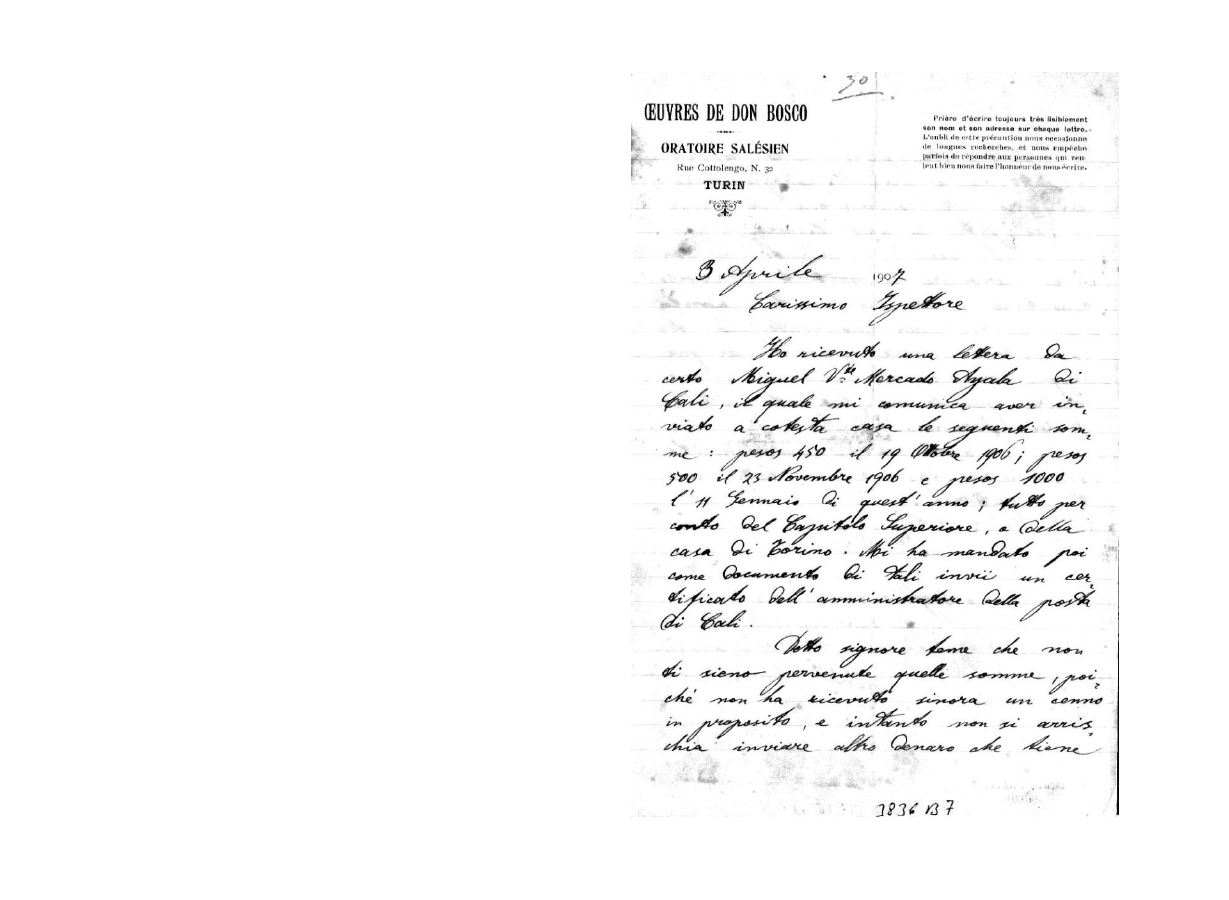 30
ŒUVRES DE DON BOSCO
ORATOIRE SALÉSIEN
Rue Cottolengo, N. 32
TURIN
Prière d'écrire toujours très lisiblement
son nom et son adresse sur chaque lettre.
L'oubli de cette précaution nous occasionne
de longues recherches, et nous empêche
parfois de répondre aux personnes qui veu-
lent bien nous faire l'honneur de nous écrire.
3 Aprile 1907
Carissimo Ispettore
Ho ricevuto una lettera da
certo Miguel Vte Mercado Ayala di
Cali, il quale mi comunica aver in-
viato a cotesta casa le seguenti som-
me: pesos 450 il 19 Ottobre 1906; pesos
500 il 23 Novembre 1906 e pesos 1000
l'11 Gennaio di quest'anno; tutto per
conto del Capitolo Superiore, o della
casa di Torino. Mi ha mandato poi
come documento di tali invii un cer-
tificato dell'amministratore della posta
di Cali.
Detto signore teme che non
ti sieno pervenute quelle somme, poi-
chè non ha ricevuto sinora un cenno
in proposito, e intanto non si arris-
chia inviare altro denaro che tiene
3836 B 7